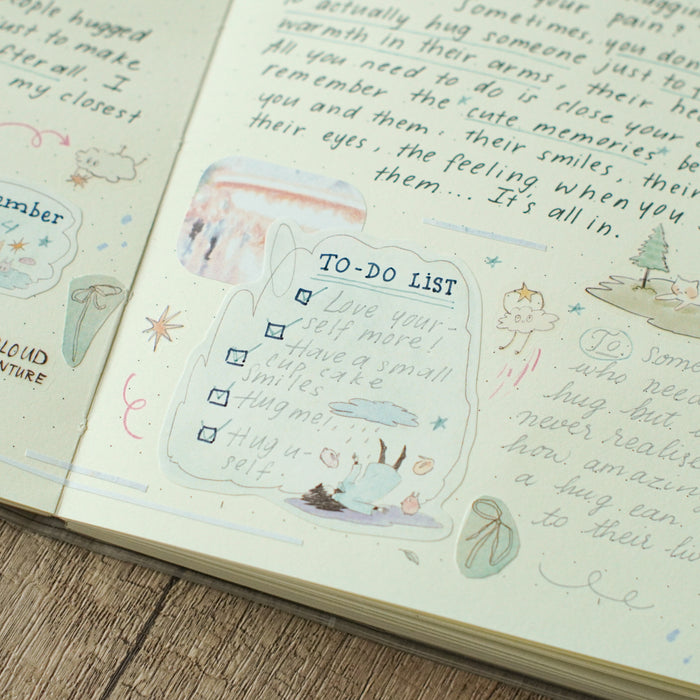 ople hugged
just to make
after all. I
my closest
ember
4
LOUD
NTURE
your pain?
Sometimes, you don
to actually hug someone just to
warmth in their arms, their he
All you need to do is close your
remember the cute memories be
you and them, their smiles, their
their eyes, the feeling when you
them.... It's all in.
TO-DO LIST
Love your-
self more!
Have a small
cup cake
Smiles
Hug me!
Hug u-
self
To: Some
who need
hug but
never realise
how amazin
a hug can
to their liv